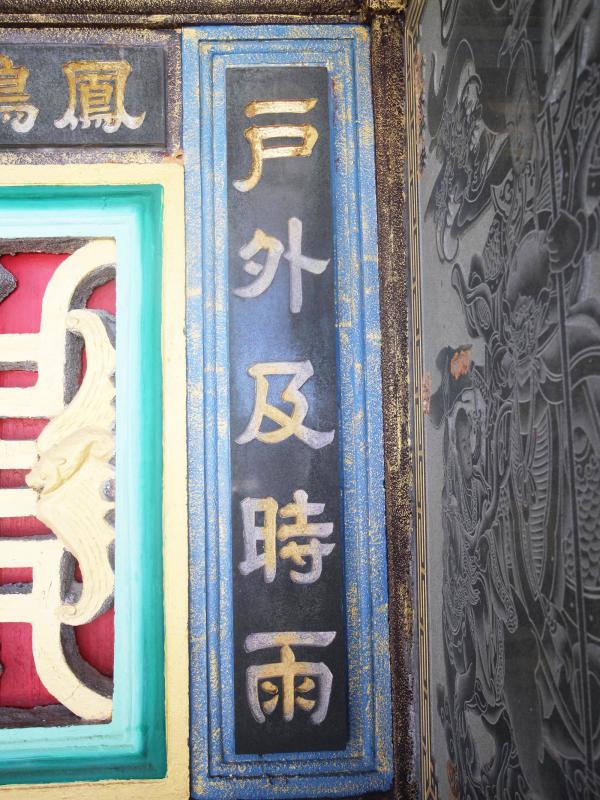 鳳鳴
戶外及時雨